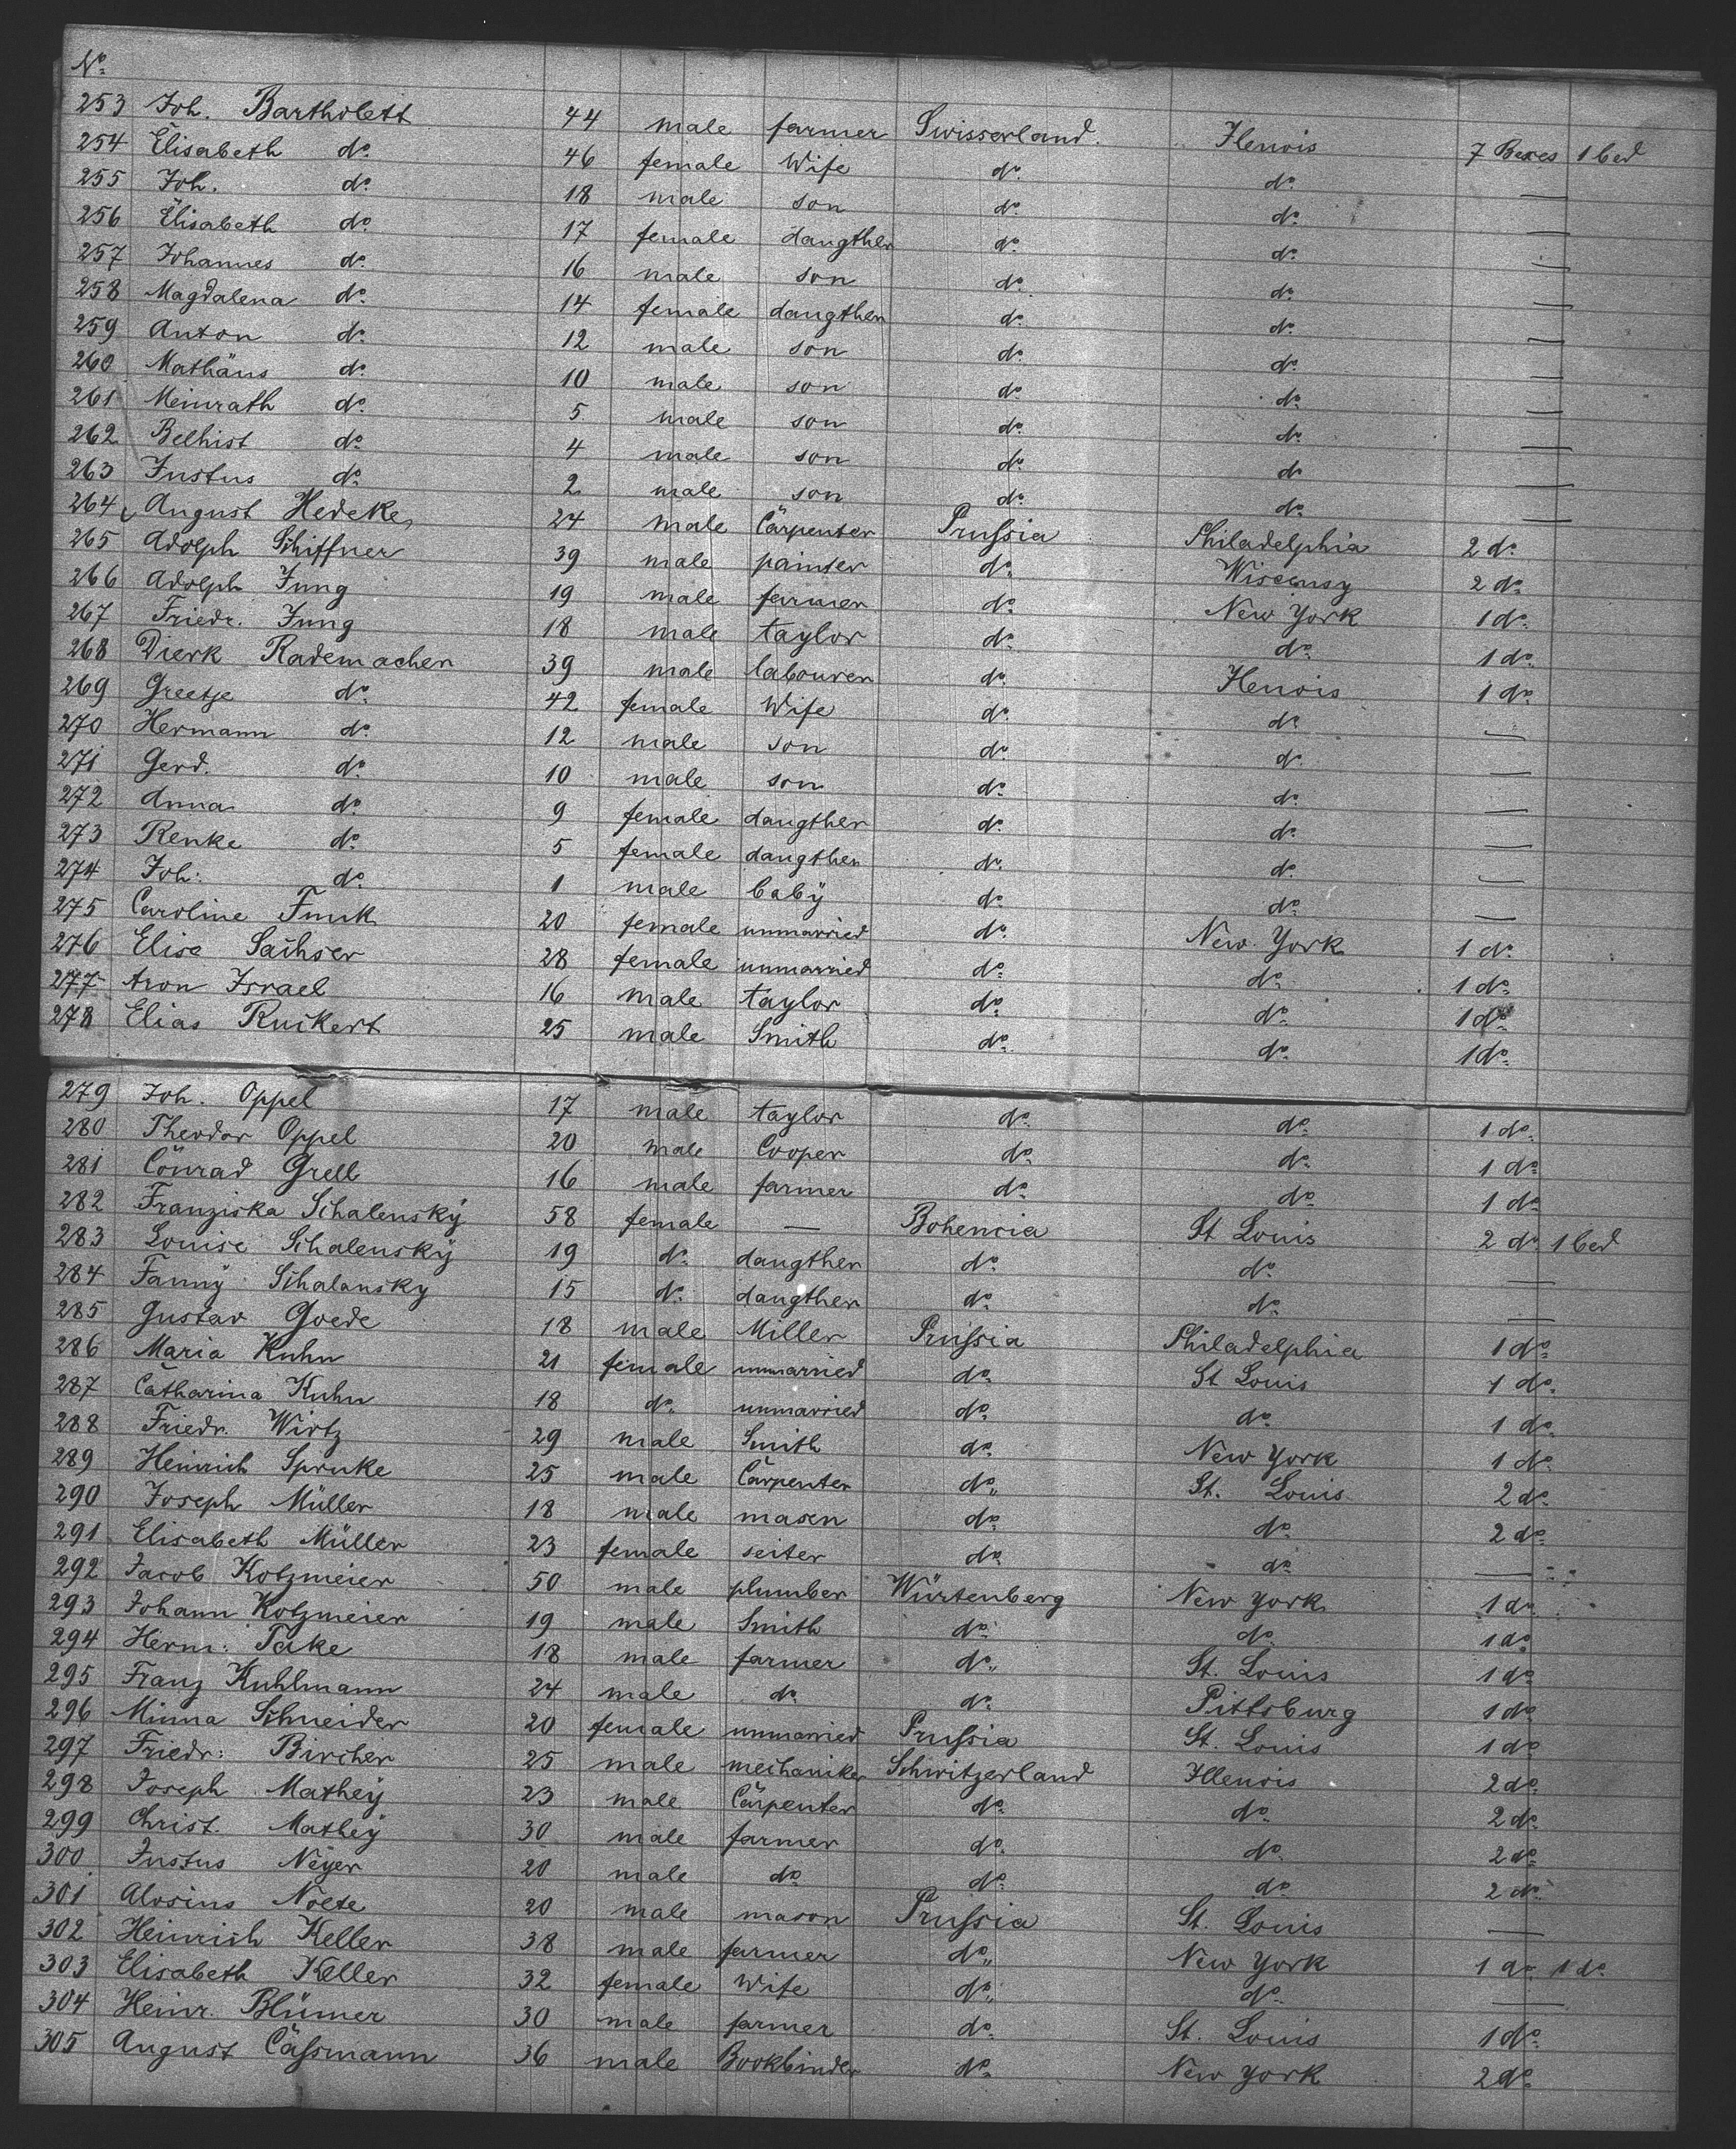 No.
253 Joh. Bartholett 44 male farmer Swisserland. Ilenois 7 Boxes 1 bed
254 Elisabeth do. 46 female Wife do. do. —
255 Joh. do. 18 male son do. do. —
256 Elisabeth do. 17 female daugther do. do. —
257 Johannes do. 16 male son do. do. —
258 Magdalena do. 14 female daugther do. do. —
259 Anton do. 12 male son do. do. —
260 Mathäus do. 10 male son do. do. —
261 Meinrath do. 5 male son do. do. —
262 Belhist do. 4 male son do. do —
263 Justus do. 2 male son do. do. —
264 August Hedeke 24 male Carpenter Prussia Philadelphia 2 do.
265 Adolph Schiffner 39 male painter do. Wiscensy 2 do.
266 Adolph Jung 19 male farmer do. New York 1 do.
267 Friedr. Jung 18 male taylor do. do. 1 do.
268 Dierk Rademacher 39 male labourer do. Ilenois 1 do.
269 Greetje do. 42 female Wife do. do. —
270 Hermann do. 12 male son do. do. —
271 Gerd. do. 10 male son do. do. —
272 Anna do. 9 female daugther do. do. —
273 Renke do. 5 female daugther do. do. —
274 Joh: do. 1 male babÿ do. do. —
275 Caroline Funk 20 female unmarried do. New York 1 do.
276 Elise Sachser 28 female unmarried do. do. 1 do.
277 Aron Israel 16 male taylor do. do. 1 do.
278 Elias Ruckert 25 male Smith do. do. 1 do.
279 Joh. Oppel 17 male taylor do. do. 1 do.
280 Theodor Oppel 20 male Cooper do. do. 1 do.
281 Conrad Grell 16 male farmer do. do. 1 do.
282 Franziska Schalenskÿ 58 female — Bohemia St Louis 2 do. 1 bed
283 Louise Schalenskÿ 19 do. daugther do. do. —
284 Fannÿ Schalansky 15 do. daugther do. do. —
285 Gustav Goede 18 male Miller Prussia Philadelphia 1 do.
286 Maria Kuhn 21 female unmarried do. St Louis 1 do.
287 Catharina Kuhn 18 do. unmarried do. do. 1 do.
288 Friedr. Wirtz 29 male Smith do. New York 1 do.
289 Heinrich Spruke 25 male Carpenter do. St. Louis 2 do.
290 Joseph Müller 18 male masen do. do. 2 do.
291 Elisabeth Müller 23 female seiter do. do. —
292 Jacob Kotzmeier 50 male plumber Würtenberg New York 1 do.
293 Johann Kotzmeier 19 male Smith do. do. 1 do.
294 Herm: Take 18 male farmer do. St. Louis 1 do.
295 Franz Kuhlmann 24 male do. do. Pittsburg 1 do.
296 Minna Schneider 20 female unmarried Prussia St. Louis 1 do.
297 Friedr: Bircher 25 male mechaniker Schwitzerland Illenois 2 do.
298 Joseph Matheÿ 23 male Carpenter do. do. 2 do.
299 Christ. Matheÿ 30 male farmer do. do. 2 do.
300 Justus Neÿer 20 male do. do. do. 2 do.
301 Alosius Noete 20 male mason Prussia St. Louis —
302 Heinrich Keller 38 male farmer do. New York 1 do. 1 do.
303 Elisabeth Keller 32 female Wife do. do. —
304 Heinr. Blümer 30 male farmer do. St. Louis 1 do.
305 August Cassmann 36 male Bookbinder do. New York 2 do.